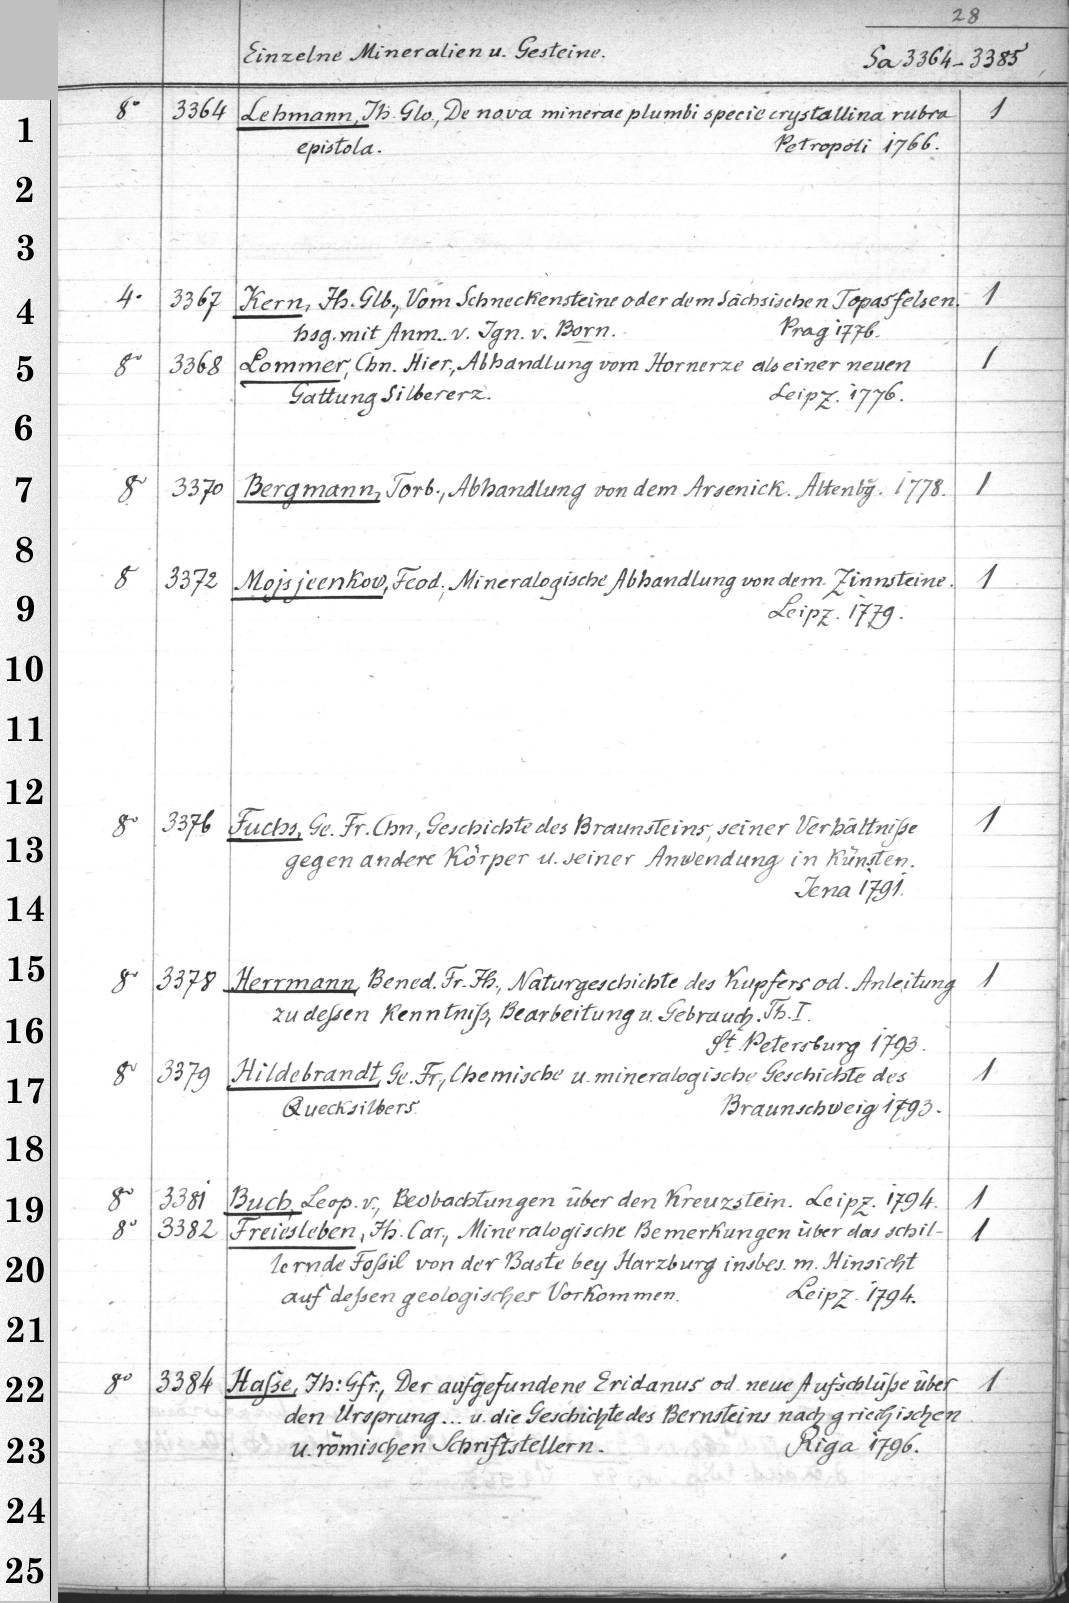 28
Einzelne Mineralien u. Gesteine.
Sa 3364-3385
1
8° 3364 Lehmann, Jh. Glo., De nova minerae plumbi specie crystallina rubra 1
epistola. Petropoli 1766.
2
3
4
4° 3367 Kern, Jh. Glb., Vom Schneckensteine oder dem Sächsischen Topasfelsen. 1
hsg. mit Anm. v. Ign. v. Born. Prag 1776.
5
8° 3368 Lommer, Chn. Hier., Abhandlung vom Hornerze als einer neuen 1
Gattung Silbererz. Leipz. 1776.
6
7
8° 3370 Bergmann, Torb., Abhandlung von dem Arsenick. Altenbg. 1778. 1
8
8 3372 Mojsjeenkow, Feod., Mineralogische Abhandlung von dem Zinnsteine. 1
9
Leipz. 1779.
10
11
12
8° 3376 Fuchs, Ge. Fr. Chn., Geschichte des Braunsteins, seiner Verhältniße 1
13
gegen andere Körper u. seiner Anwendung in Künsten.
Jena 1791.
14
15
8° 3378 Herrmann, Bened. Fr. Jh., Naturgeschichte des Kupfers od. Anleitung 1
zu deßen Kenntniß, Bearbeitung u. Gebrauch. Th. I.
16
St. Petersburg 1793.
8° 3379 Hildebrandt, Ge. Fr., Chemische u. mineralogische Geschichte des 1
17
Quecksilbers. Braunschweig 1793.
18
8° 3381 Buch, Leop. v., Beobachtungen über den Kreuzstein. Leipz. 1794. 1
19
8° 3382 Freiesleben, Jh. Car., Mineralogische Bemerkungen über das schil- 1
20
lernde Foßil von der Baste bey Harzburg insbes. m. Hinsicht
auf deßen geologisches Vorkommen. Leipz. 1794.
21
22
8° 3384 Haße, Jh: Gfr., Der aufgefundene Eridanus od. neue Aufschlüße über 1
den Ursprung... u. die Geschichte des Bernsteins nach griechischen
23
u. römischen Schriftstellern. Riga 1796.
24
25